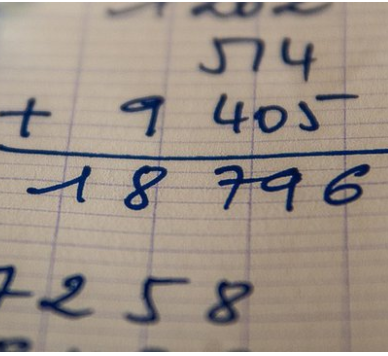 514
+ 9 405
18 796
7258